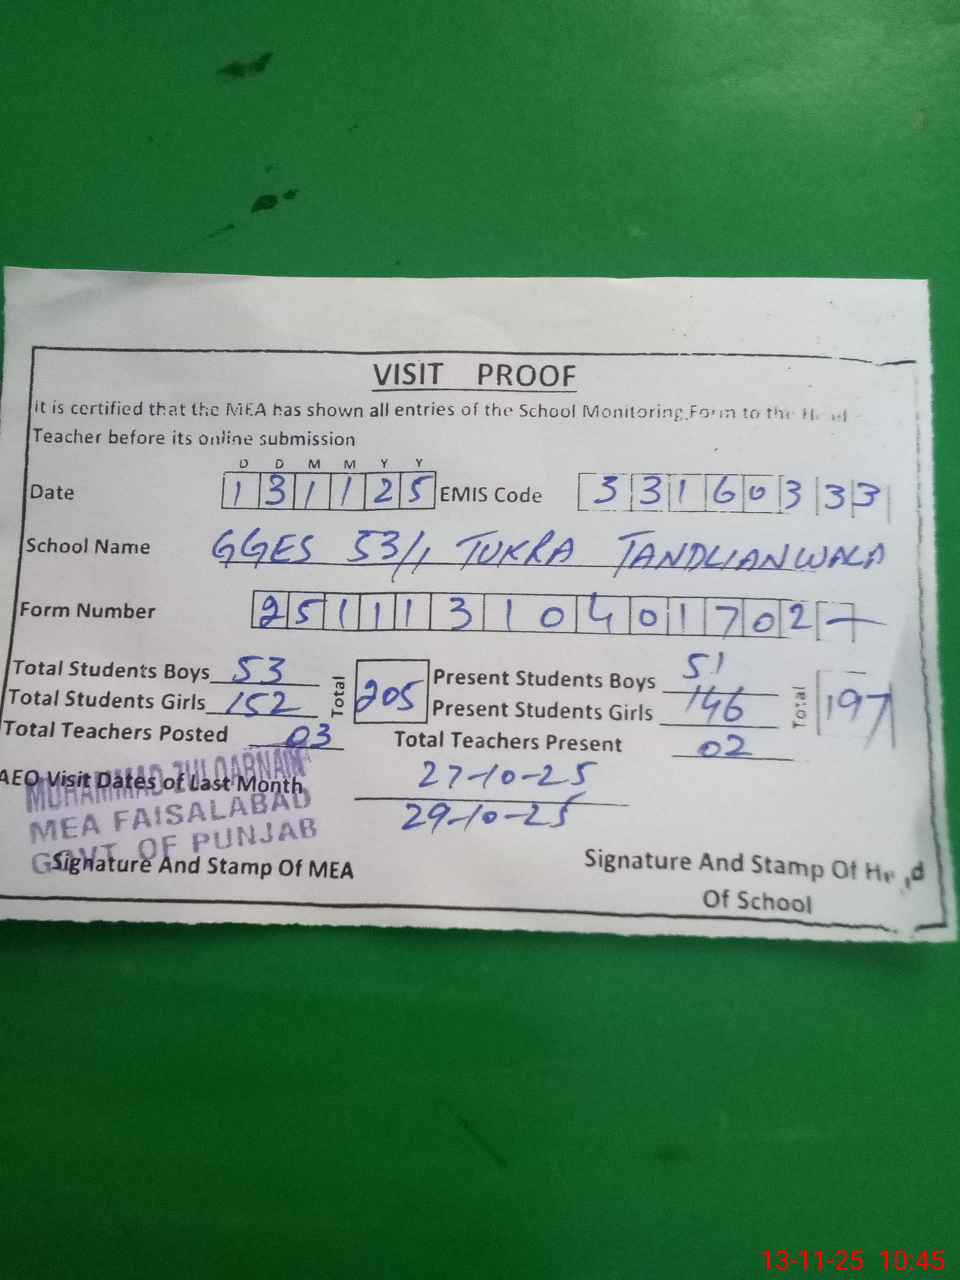 VISIT PROOF
It is certified that the MEA has shown all entries of the School Monitoring Form to the Head
Teacher before its online submission
D D M M Y Y
Date 131125 EMIS Code 33160333
School Name GGES 53/1 TUKRA TANDLIANWALA
Form Number 25111310401702-
Total Students Boys 53
Total Students Girls 152
Total 205
Present Students Boys 51
Present Students Girls 146
Total 197
Total Teachers Posted 03 Total Teachers Present 02
AEO Visit Dates of Last Month 27-10-25
29-10-25
MUHAMMAD ZULQARNAIN
MEA FAISALABAD
GOVT OF PUNJAB
Signature And Stamp Of MEA
Signature And Stamp Of Head
Of School
13-11-25 10:45